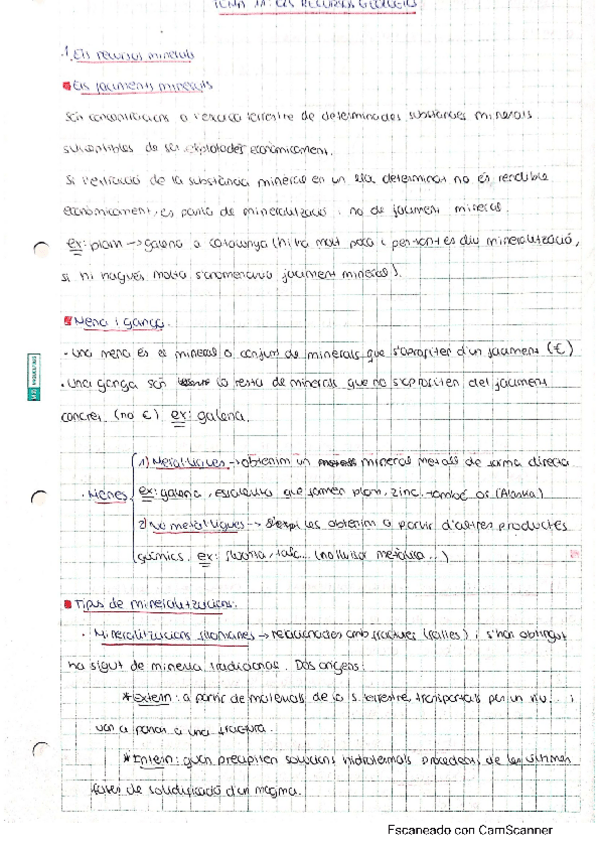 TEMA 11: ELS RECURSOS GEOLÒGICS
1. Els recursos minerals
Els jaciments minerals
Són concentracions a l'escorça terrestre de determinades substàncies minerals
susceptibles de ser explotades econòmicament.
Si l'extracció de la substància mineral en un lloc determinat no és rendible
econòmicament, es parla de mineralització i no de jaciment mineral.
ex: plom → galena a Catalunya (hi ha molt poca i per tant és diu mineralització,
si hi hagués molta s'anomenaria jaciment mineral).
Mena i ganga.
· Una mena és el mineral o conjunt de minerals que s'aprofiten d'un jaciment (€)
· Una ganga són la resta de minerals que no s'aprofiten del jaciment
concret (no €) ex: galena.
1) Metal·lúrgiques → obtenim un mineral metall de forma directa
· Menes ex: galena, que formen plom, zinc. també or (Alaska)
2) No metal·lúrgiques → les obtenim a partir d'altres productes
químics. ex: fluorita, talc... (no lluïsor metàl·lica...)
Tipus de mineralitzacions:
· Mineralitzacions filonianes → relacionades amb fractures (falles) i s'han obtingut
ha sigut de mineria tradicional. Dos orígens:
* Extern: a partir de materials de la s. terrestre, transportats per un riu... i
van a parar a una fractura.
* Intern: quan precipiten solucions hidrotermals procedents de les últimes
fases de solidificació d'un magma.
Escaneado con CamScanner